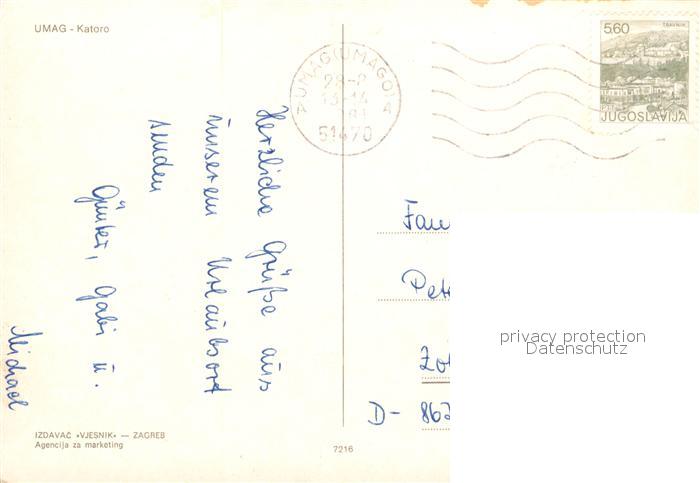 UMAG - Katoro
UMAG(UMAGO)
13-14
51470
5,60
TRAVNIK
PTT
JUGOSLAVIJA
Herzliche Grüße aus
unserem Urlaubsort
senden
Günter, Gabi u.
Michael
Fam
Pet
D- 862
privacy protection
Datenschutz
IZDAVAČ »VJESNIK« — ZAGREB
Agencija za marketing
7216